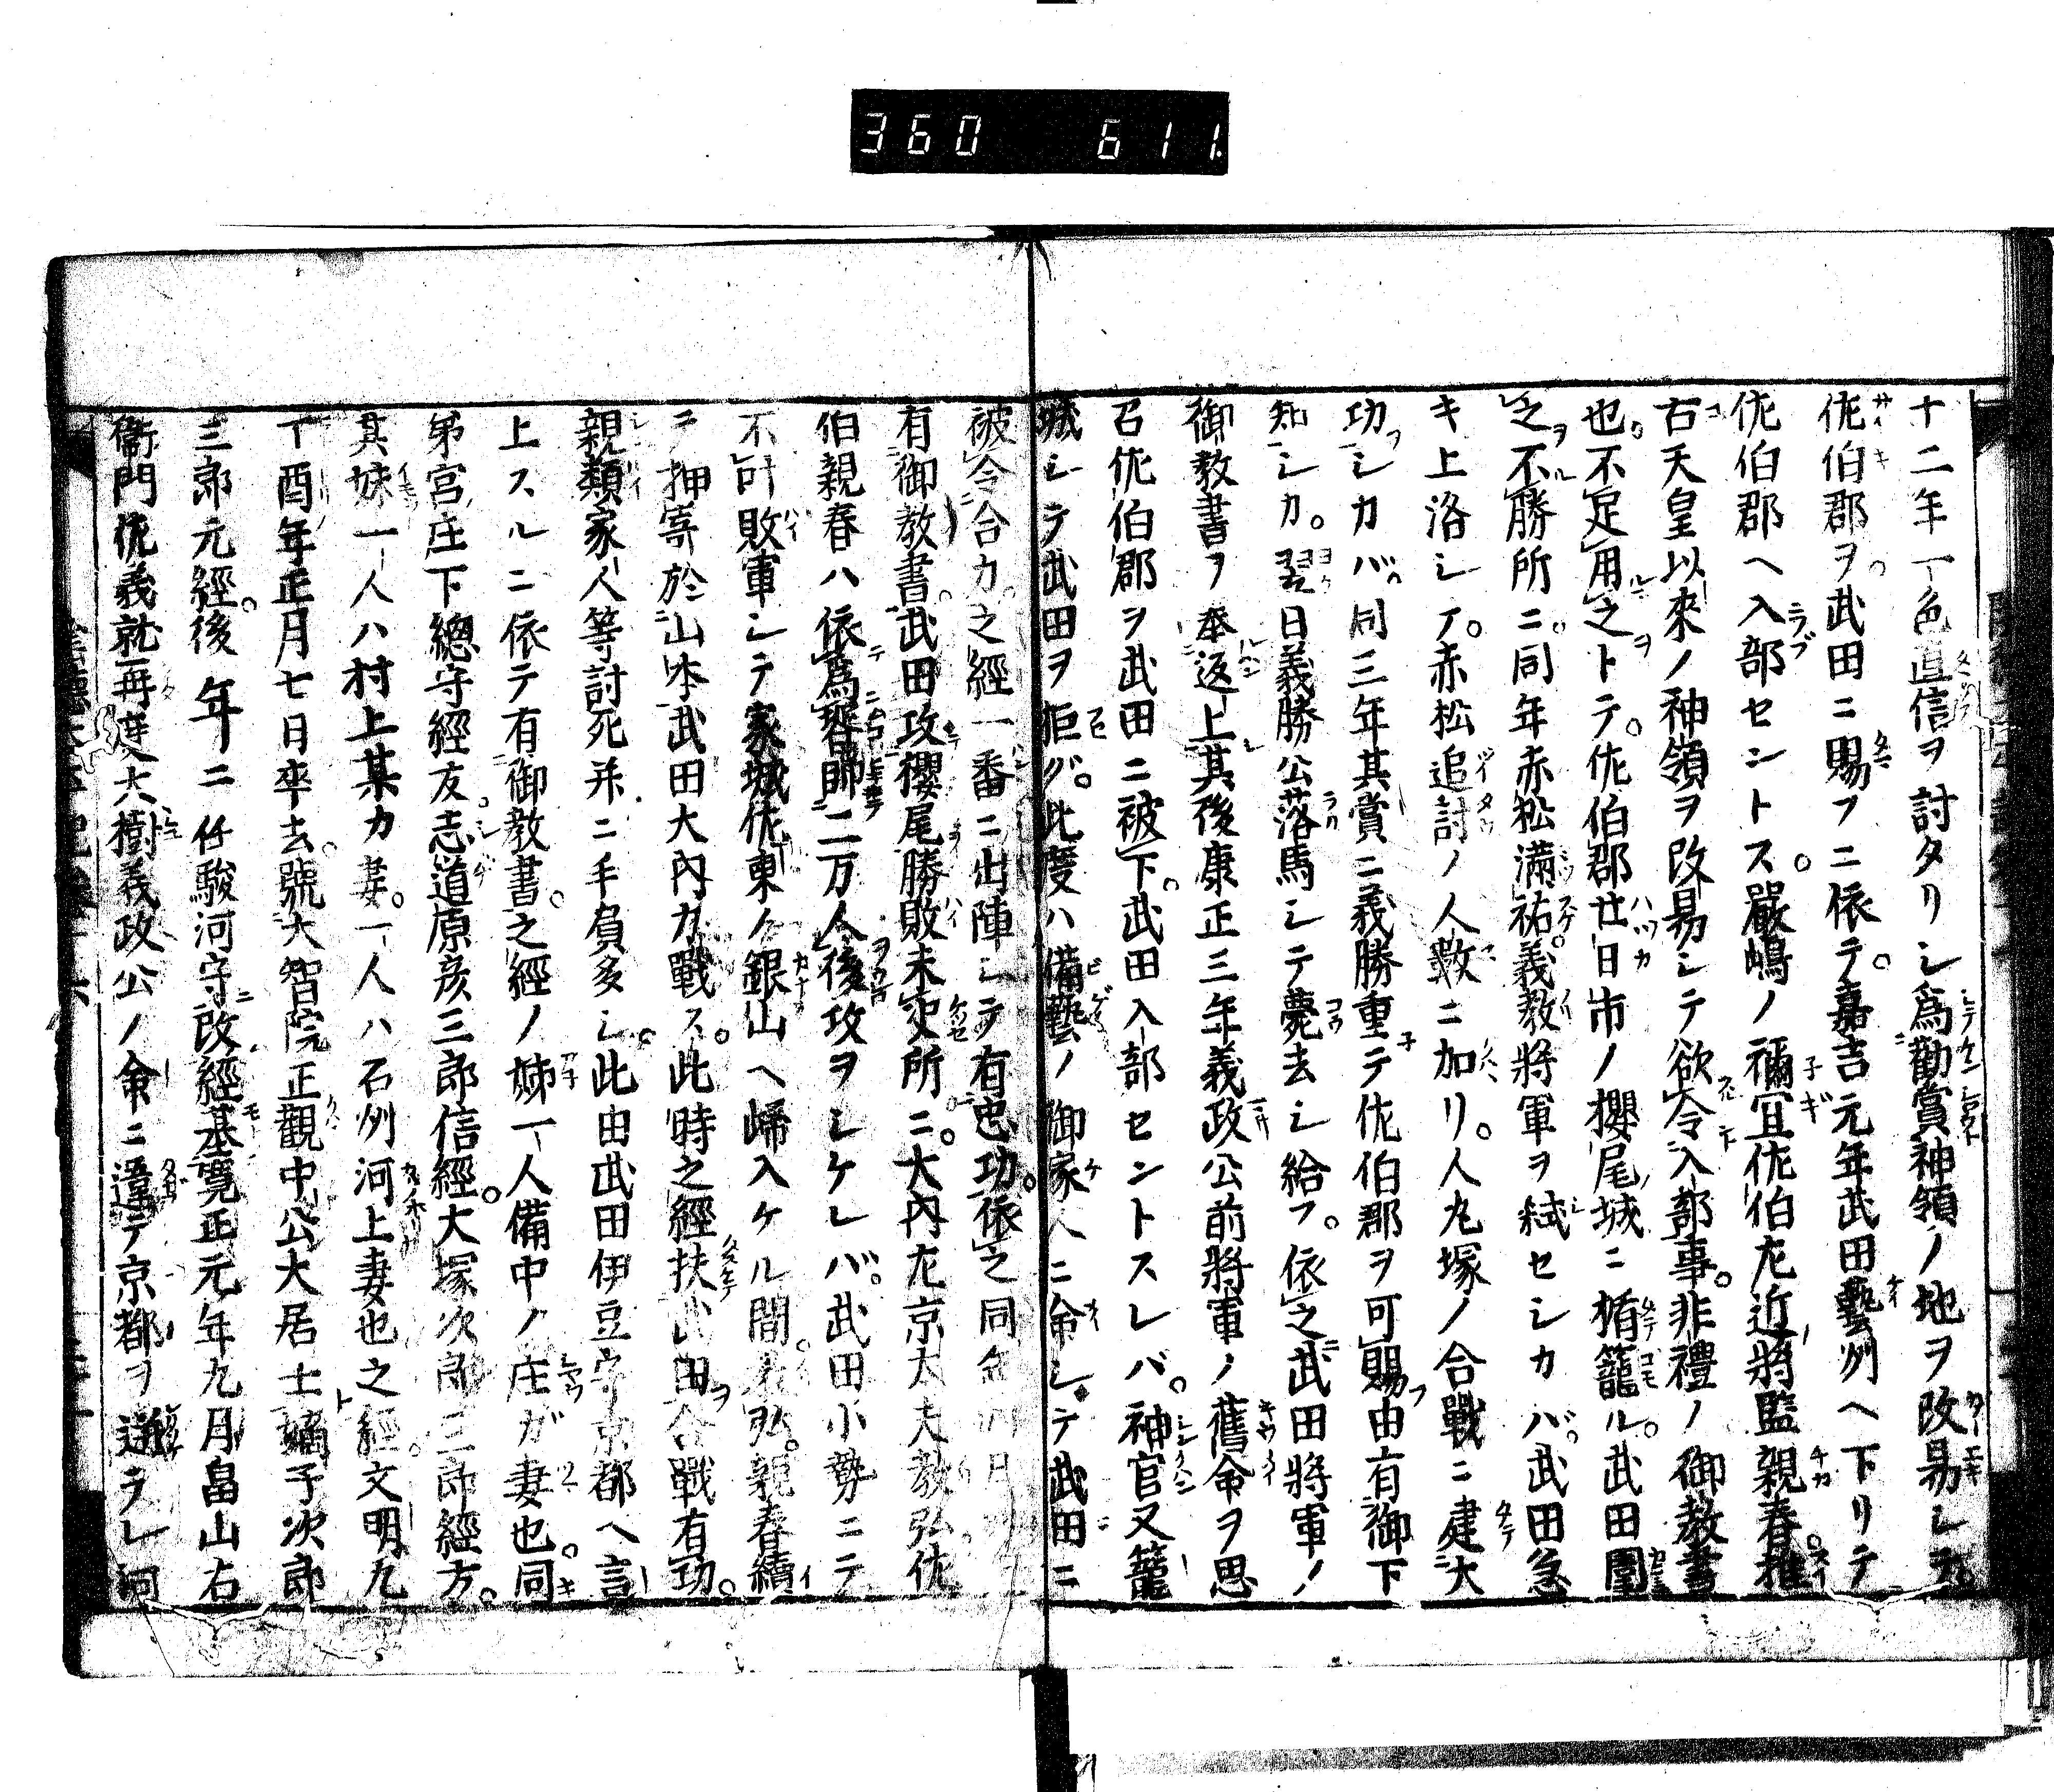 360 611
十二年一色直信ヲ討タリシ為勧賞神領ノ地ヲ改易シテ
佐伯郡ヲ。武田ニ賜フニ依テ。嘉吉元年武田藝州ヘ下リテ
佐伯郡ヘ入部セントス。嚴嶋ノ禰宜佐伯左近將監親春。推
古天皇以來ノ神領ヲ改易シテ欲令入部事。非禮ノ御教書
也。不足用之トテ。佐伯郡廿日市ノ櫻尾城ニ楯籠ル。武田圍
之不勝所ニ。同年赤松滿祐。義教將軍ヲ弑セシカバ。武田急
キ上洛シテ。赤松追討ノ人數ニ加リ。人丸塚ノ合戰ニ建大
功シカバ。同三年其賞ニ義勝重テ佐伯郡ヲ可賜由有御下
知シカ。翌日義勝公落馬シテ薨去シ給フ。依之武田將軍ノ
御教書ヲ奉返上其後康正三年義政公前將軍ノ舊命ヲ思
召佐伯郡ヲ武田ニ被下。武田入部セントスレバ。神官又籠
城シテ武田ヲ拒バ。此度ハ備藝ノ御家人ニ命シテ武田ニ
被令合力。之經一番ニ出陣シテ有忠功。依之同年
有御教書。武田攻櫻尾勝敗未決所ニ。大内左京大夫教弘佐
伯親春ハ依為聟帥二万人後攻ヲシケレバ。武田小勢ニテ
不叶敗軍シテ家城佐東ノ銀山ヘ歸入ケル間。教弘。親春續
テ押寄於山本武田大内ガ戰ス。此時之經扶武田合戰有功。
親類家人等討死并ニ手負多シ。此由武田伊豆守京都ヘ言
上スルニ依テ有御教書。之經ノ姉一人備中ノ庄ガ妻也。同
弟宮庄下總守經友。志道原彦三郎信經。大塚次郎三郎經方。
其妹一人ハ村上某カ妻。一人ハ石州河上妻也之經。文明九
丁酉年正月七日卒去。號大智院正觀中公大居士嫡子次郎
三郎元經。後年ニ任駿河守改經基寛正元年九月畠山右
衞門佐義就再度大樹義政公ノ命ニ違テ京都ヲ遯ラレ河